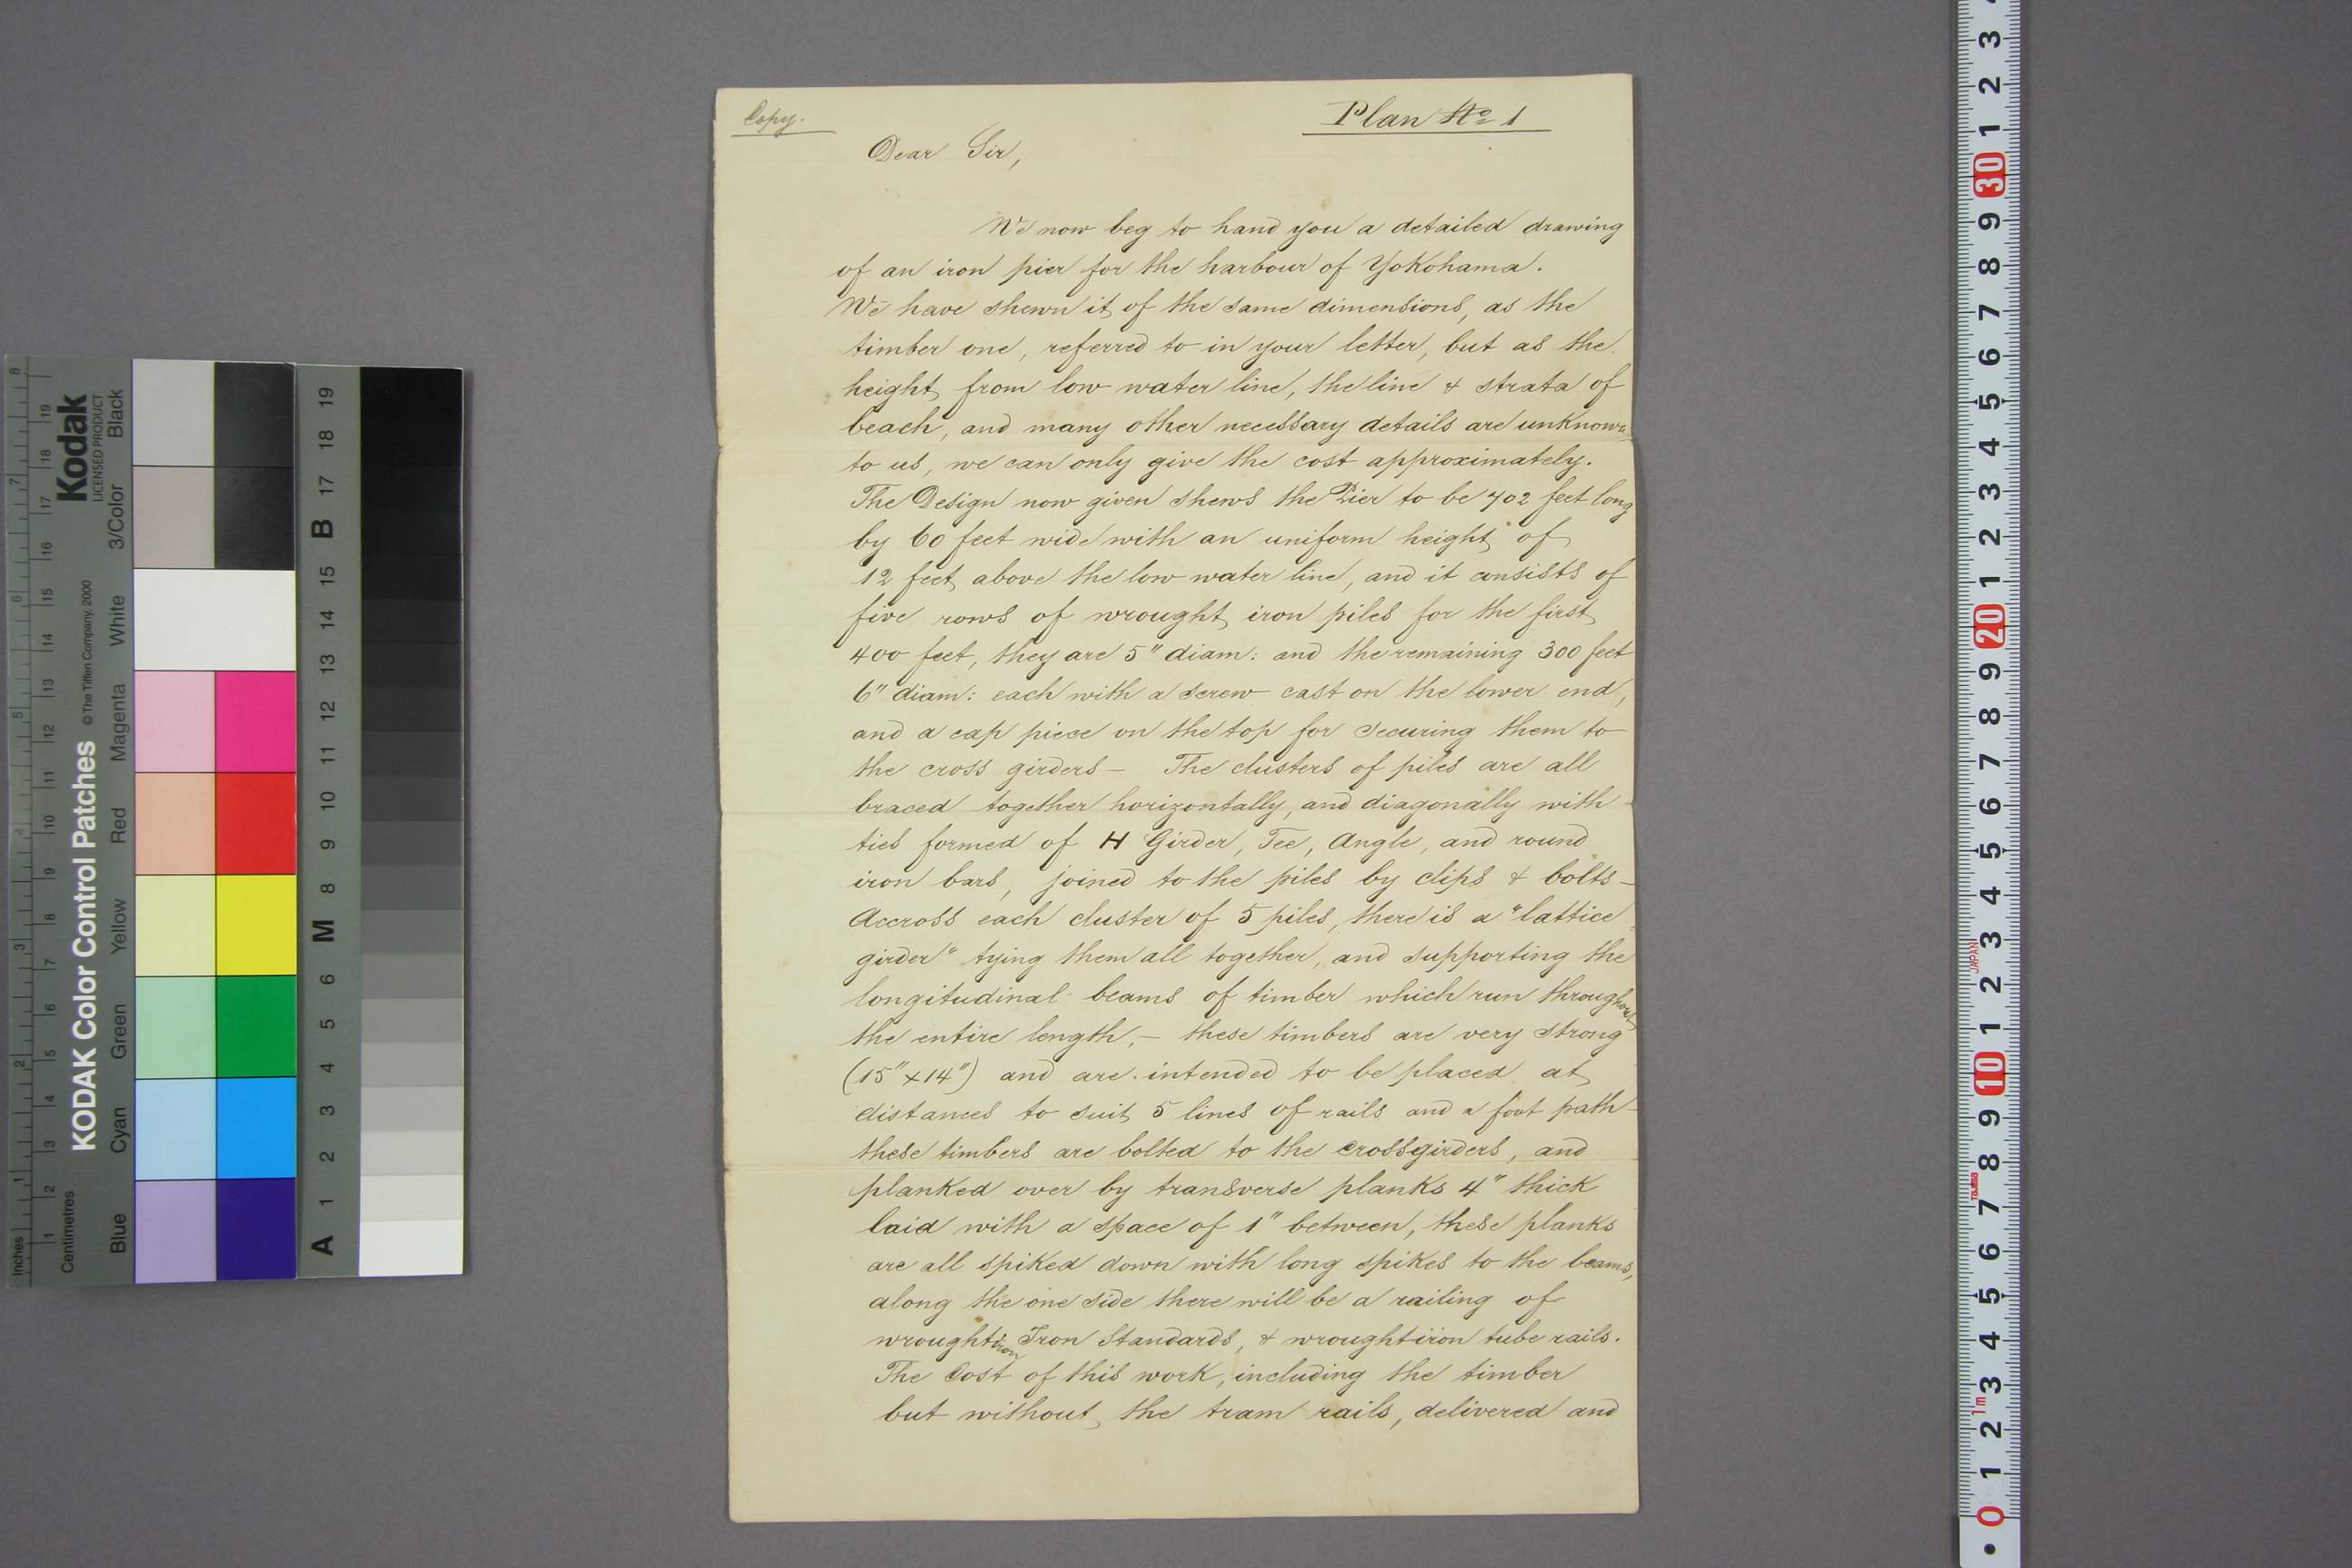 Copy.
Plan No 1
Dear Sir,
We now beg to hand you a detailed drawing
of an iron pier for the harbour of Yokohama.
We have shewn it of the same dimensions, as the
timber one, referred to in your letter, but as the
height from low water line, the line & strata of
beach, and many other necessary details are unknown
to us, we can only give the cost approximately.
The Design now given shews the Pier to be 702 feet long
by 60 feet wide with an uniform height of
12 feet above the low water line, and it consists of
five rows of wrought iron piles for the first
400 feet, they are 5" diam: and the remaining 300 feet
6" diam: each with a screw cast on the lower end,
and a cap piece on the top for securing them to
the cross girders – The clusters of piles are all
braced together horizontally, and diagonally with
ties formed of H Girder, Tee, Angle, and round
iron bars, joined to the piles by clips & bolts –
Accross each cluster of 5 piles, there is a "lattice
girder" tying them all together, and supporting the
longitudinal beams of timber which run throughout
the entire length, – these timbers are very strong
(15" x 14") and are intended to be placed at
distances to suit 5 lines of rails and a foot path –
these timbers are bolted to the crossgirders, and
planked over by transverse planks 4" thick
laid with a space of 1" between, these planks
are all spiked down with long spikes to the beams,
along the one side there will be a railing of
wrought iron Iron Standards, & wrought iron tube rails.
The Cost of this work, including the timber
but without the tram rails, delivered and
KODAK Color Control Patches
© The Tiffen Company, 2000
Kodak
LICENSED PRODUCT
Inches
Centimetres
Blue
Cyan
Green
Yellow
Red
Magenta
White
3/Color
Black
1
2
3
4
5
6
7
8
1
2
3
4
5
6
7
8
9
10
11
12
13
14
15
16
17
18
19
A
1
2
3
4
5
6
M
8
9
10
11
12
13
14
15
B
17
18
19
3
2
1
30
9
8
7
6
5
4
3
2
1
20
9
8
7
6
5
4
3
JAPAN
2
1
10
9
8
7
Tajima
6
5
4
3
1m
2
1
0